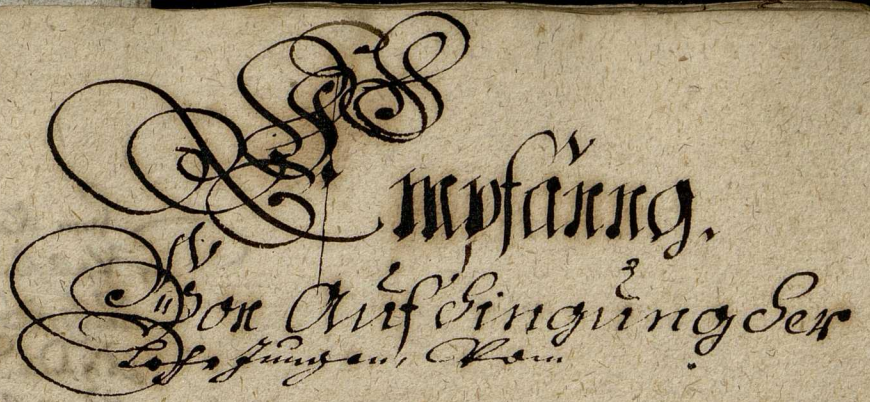 Empfänng.
Von Aufdingüng der
Lehr Jungen, Vom